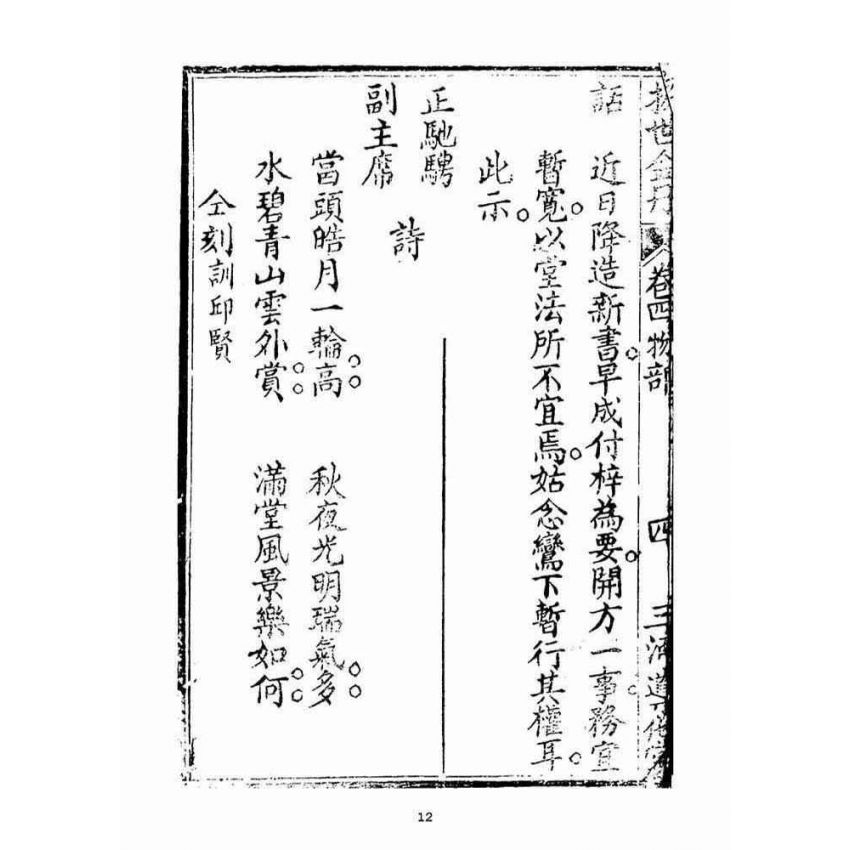 世金丹 卷四物部 四 三
話 近日降造新書。早成付梓為要。開方一事。務宜
暫寬。以堂法所不宜焉。姑念鸞下暫行其權耳。
此示。
正馳騁
副主席 詩
當頭皓月一輪高。 秋夜光明瑞氣多。
水碧青山雲外賞。 滿堂風景樂如何。
仝刻訓邱賢
12